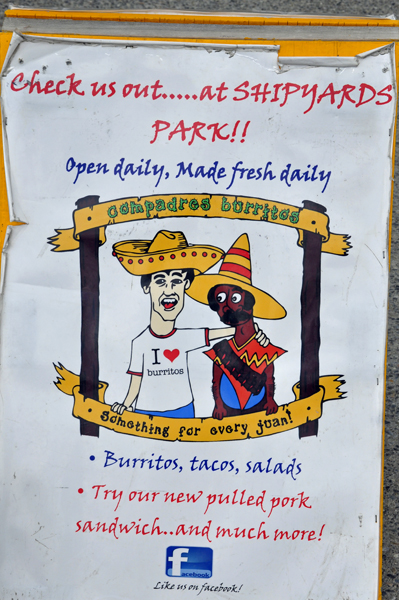 Check us out.....at SHIPYARDS
PARK!!
Open daily, Made fresh daily
Compadres burritos
I ❤
burritos
Something for every juan!
• Burritos, tacos, salads
• Try our new pulled pork
sandwich..and much more!
facebook
Like us on facebook!